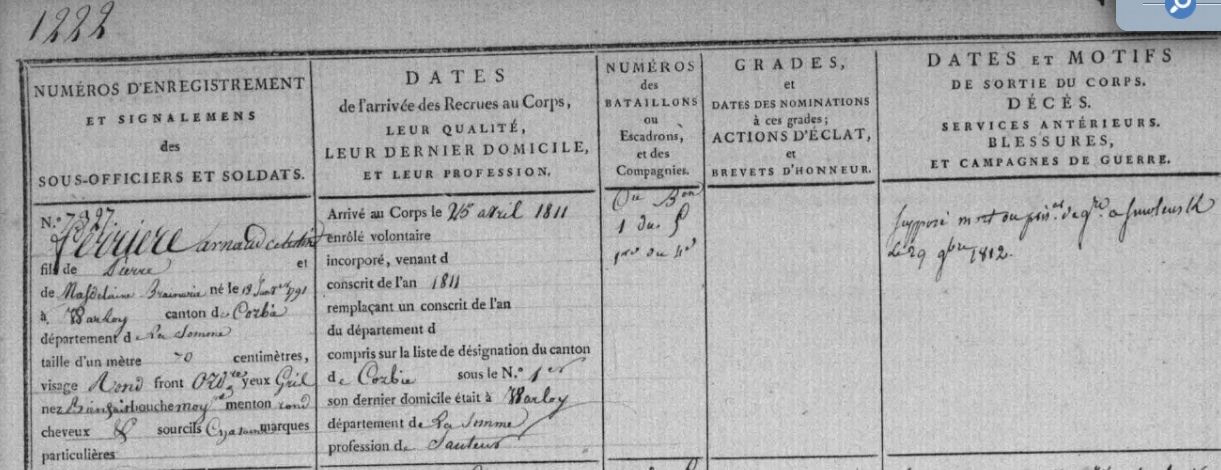 1222
NUMÉROS D'ENREGISTREMENT
ET SIGNALEMENS
des
SOUS-OFFICIERS ET SOLDATS.
DATES
de l'arrivée des Recrues au Corps,
LEUR QUALITÉ,
LEUR DERNIER DOMICILE,
ET LEUR PROFESSION.
NUMÉROS
des
BATAILLONS
ou
Escadrons,
et des
Compagnies.
GRADES,
et
DATES DES NOMINATIONS
à ces grades;
ACTIONS D'ÉCLAT,
et
BREVETS D'HONNEUR.
DATES ET MOTIFS
DE SORTIE DU CORPS.
DÉCÈS.
SERVICES ANTÉRIEURS.
BLESSURES,
ET CAMPAGNES DE GUERRE.
N.º 7327
arnaud
fils de Pierre et
de Magdelaine né le 18
à Warloy canton de Corbie
département de La Somme
taille d'un mètre 70 centimètres,
visage Rond front Ord.re yeux Gris
nez Bienfait bouche moy.e menton rond
cheveux & sourcils marques
particulières
Arrivé au Corps le 25 avril 1811
enrôlé volontaire
incorporé, venant d
conscrit de l'an 1811
remplaçant un conscrit de l'an
du département d
compris sur la liste de désignation du canton
de Corbie sous le N.º 1er
son dernier domicile était à Warloy
département de La Somme
profession de
1 du 5
1er du 4e
Supposé mort ou pris.er de g.re a Smolensk
Le 29 9bre 1812.